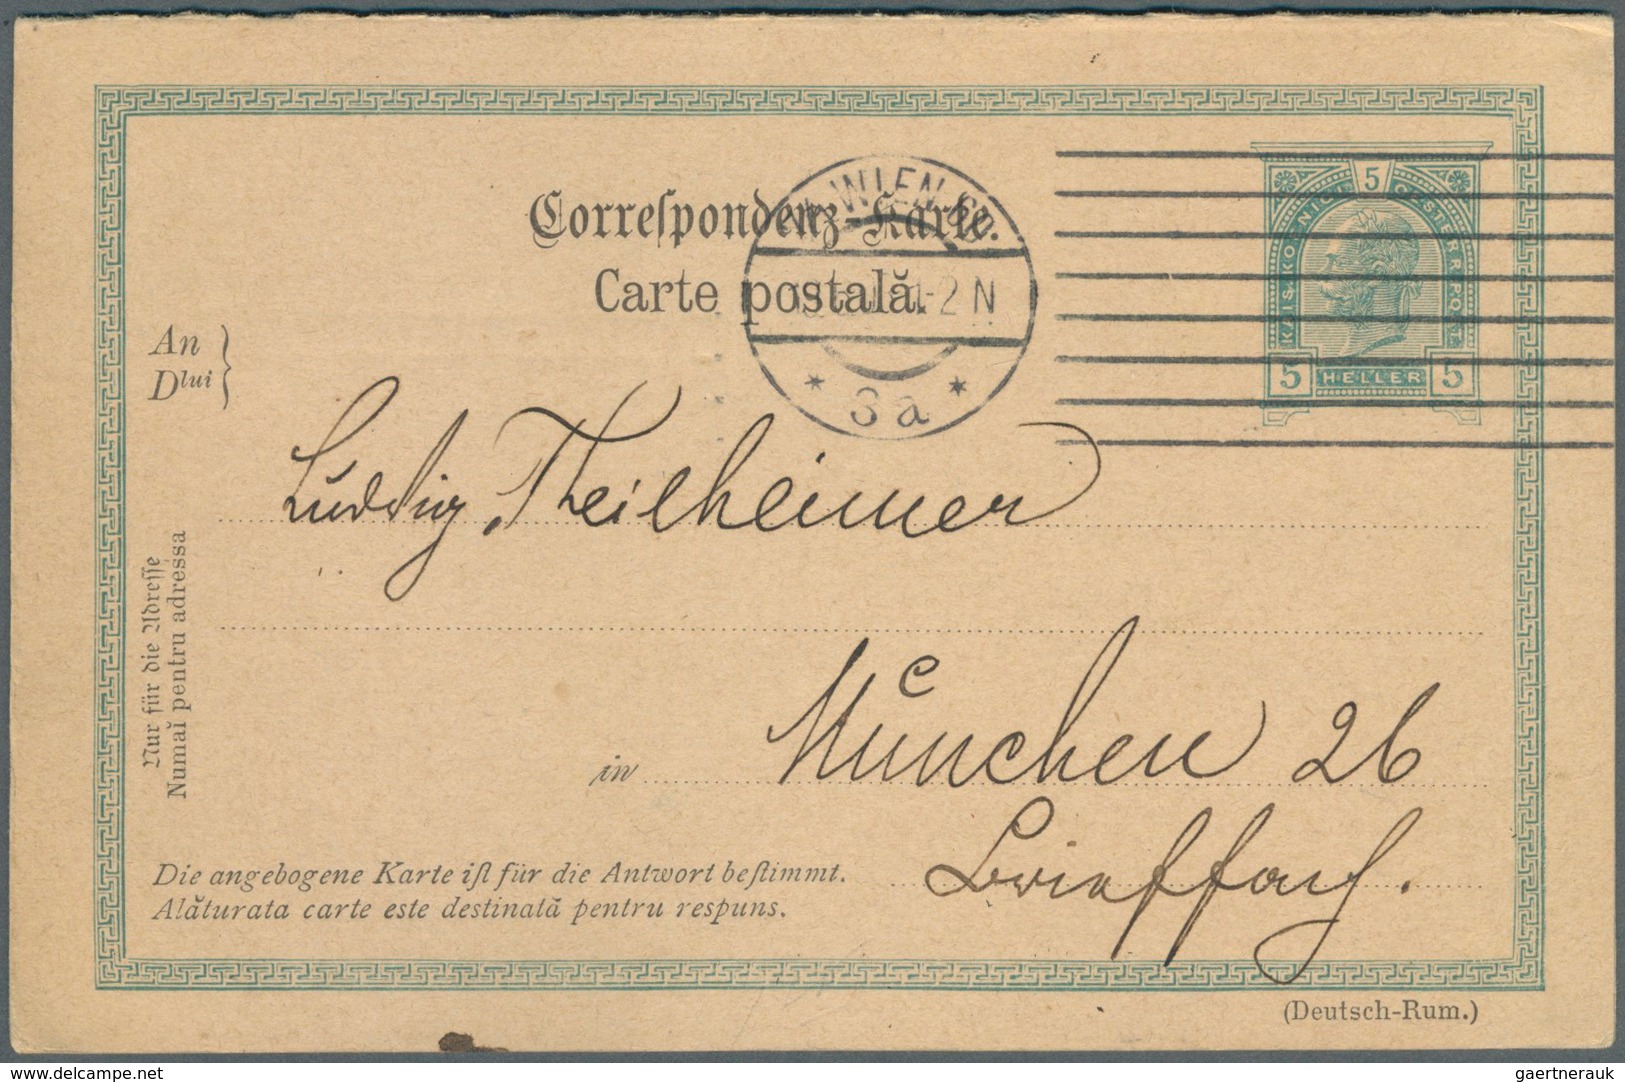 Correſpondenz-Karte.
Carte postală.
WIEN
1-2 N
* 3a *
5
KAIS. KOENIGL. OESTERR. POST
5 HELLER 5
An
Dlui
Ludwig Theilheimer
Nur für die Adreſſe
Numaĭ pentru adressa
in München 26
Brieffach.
Die angebogene Karte iſt für die Antwort beſtimmt.
Alăturata carte este destinată pentru respuns.
(Deutsch-Rum.)
www.delcampe.com
gaertnerauk